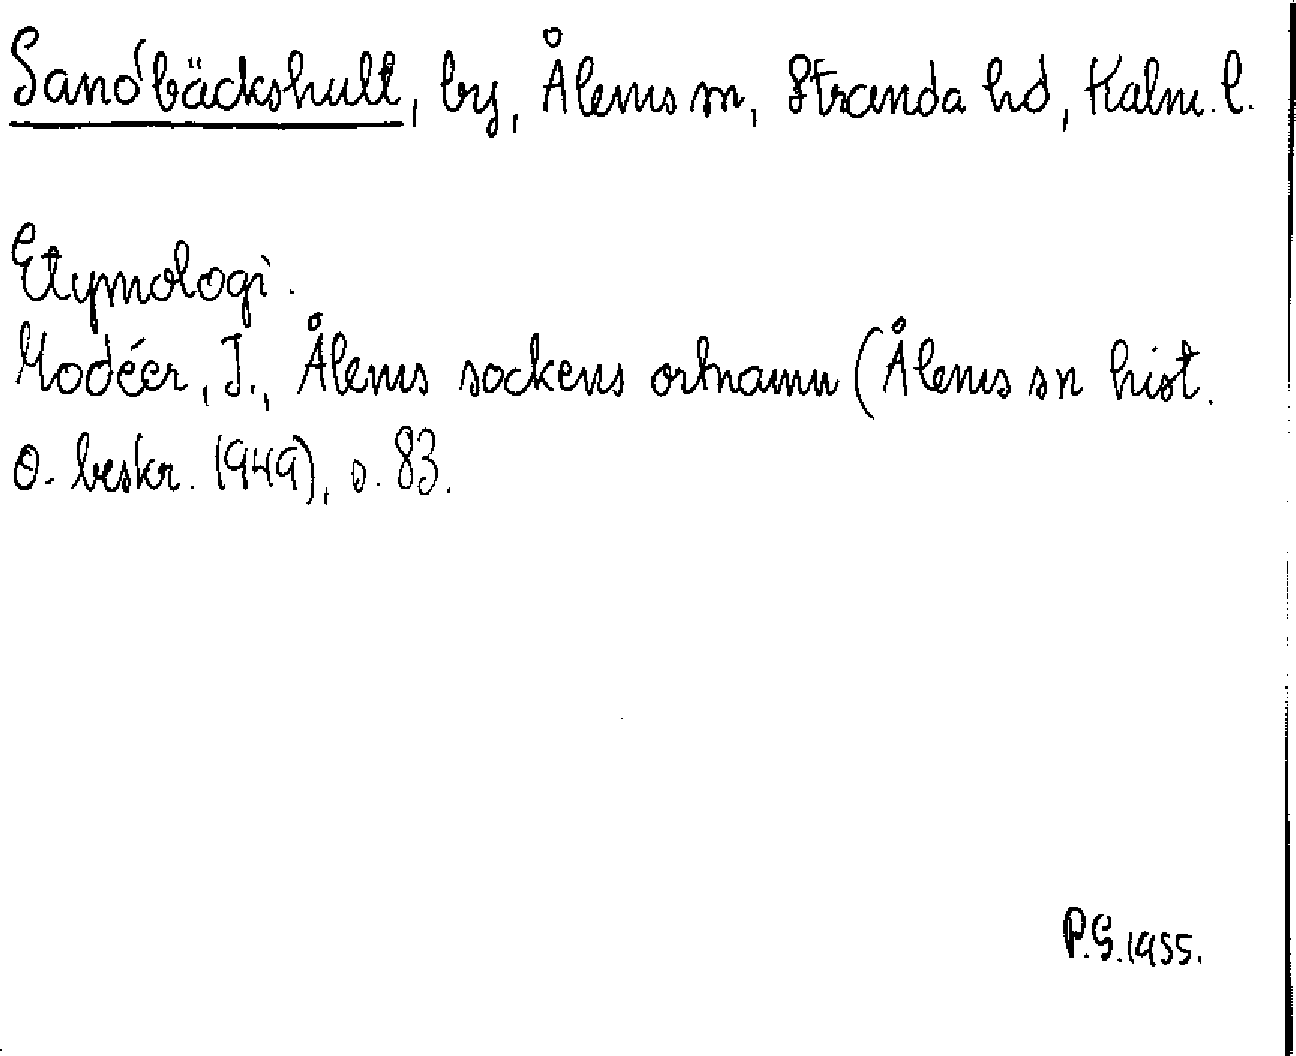 Sandbäckshult, by, Ålems sn, Stranda hd, Kalm. l.
Etymologi.
Modéer, I., Ålems sockens ortnamn (Ålems sn hist.
o. beskr. 1949), s. 83.
P.G. 1955.